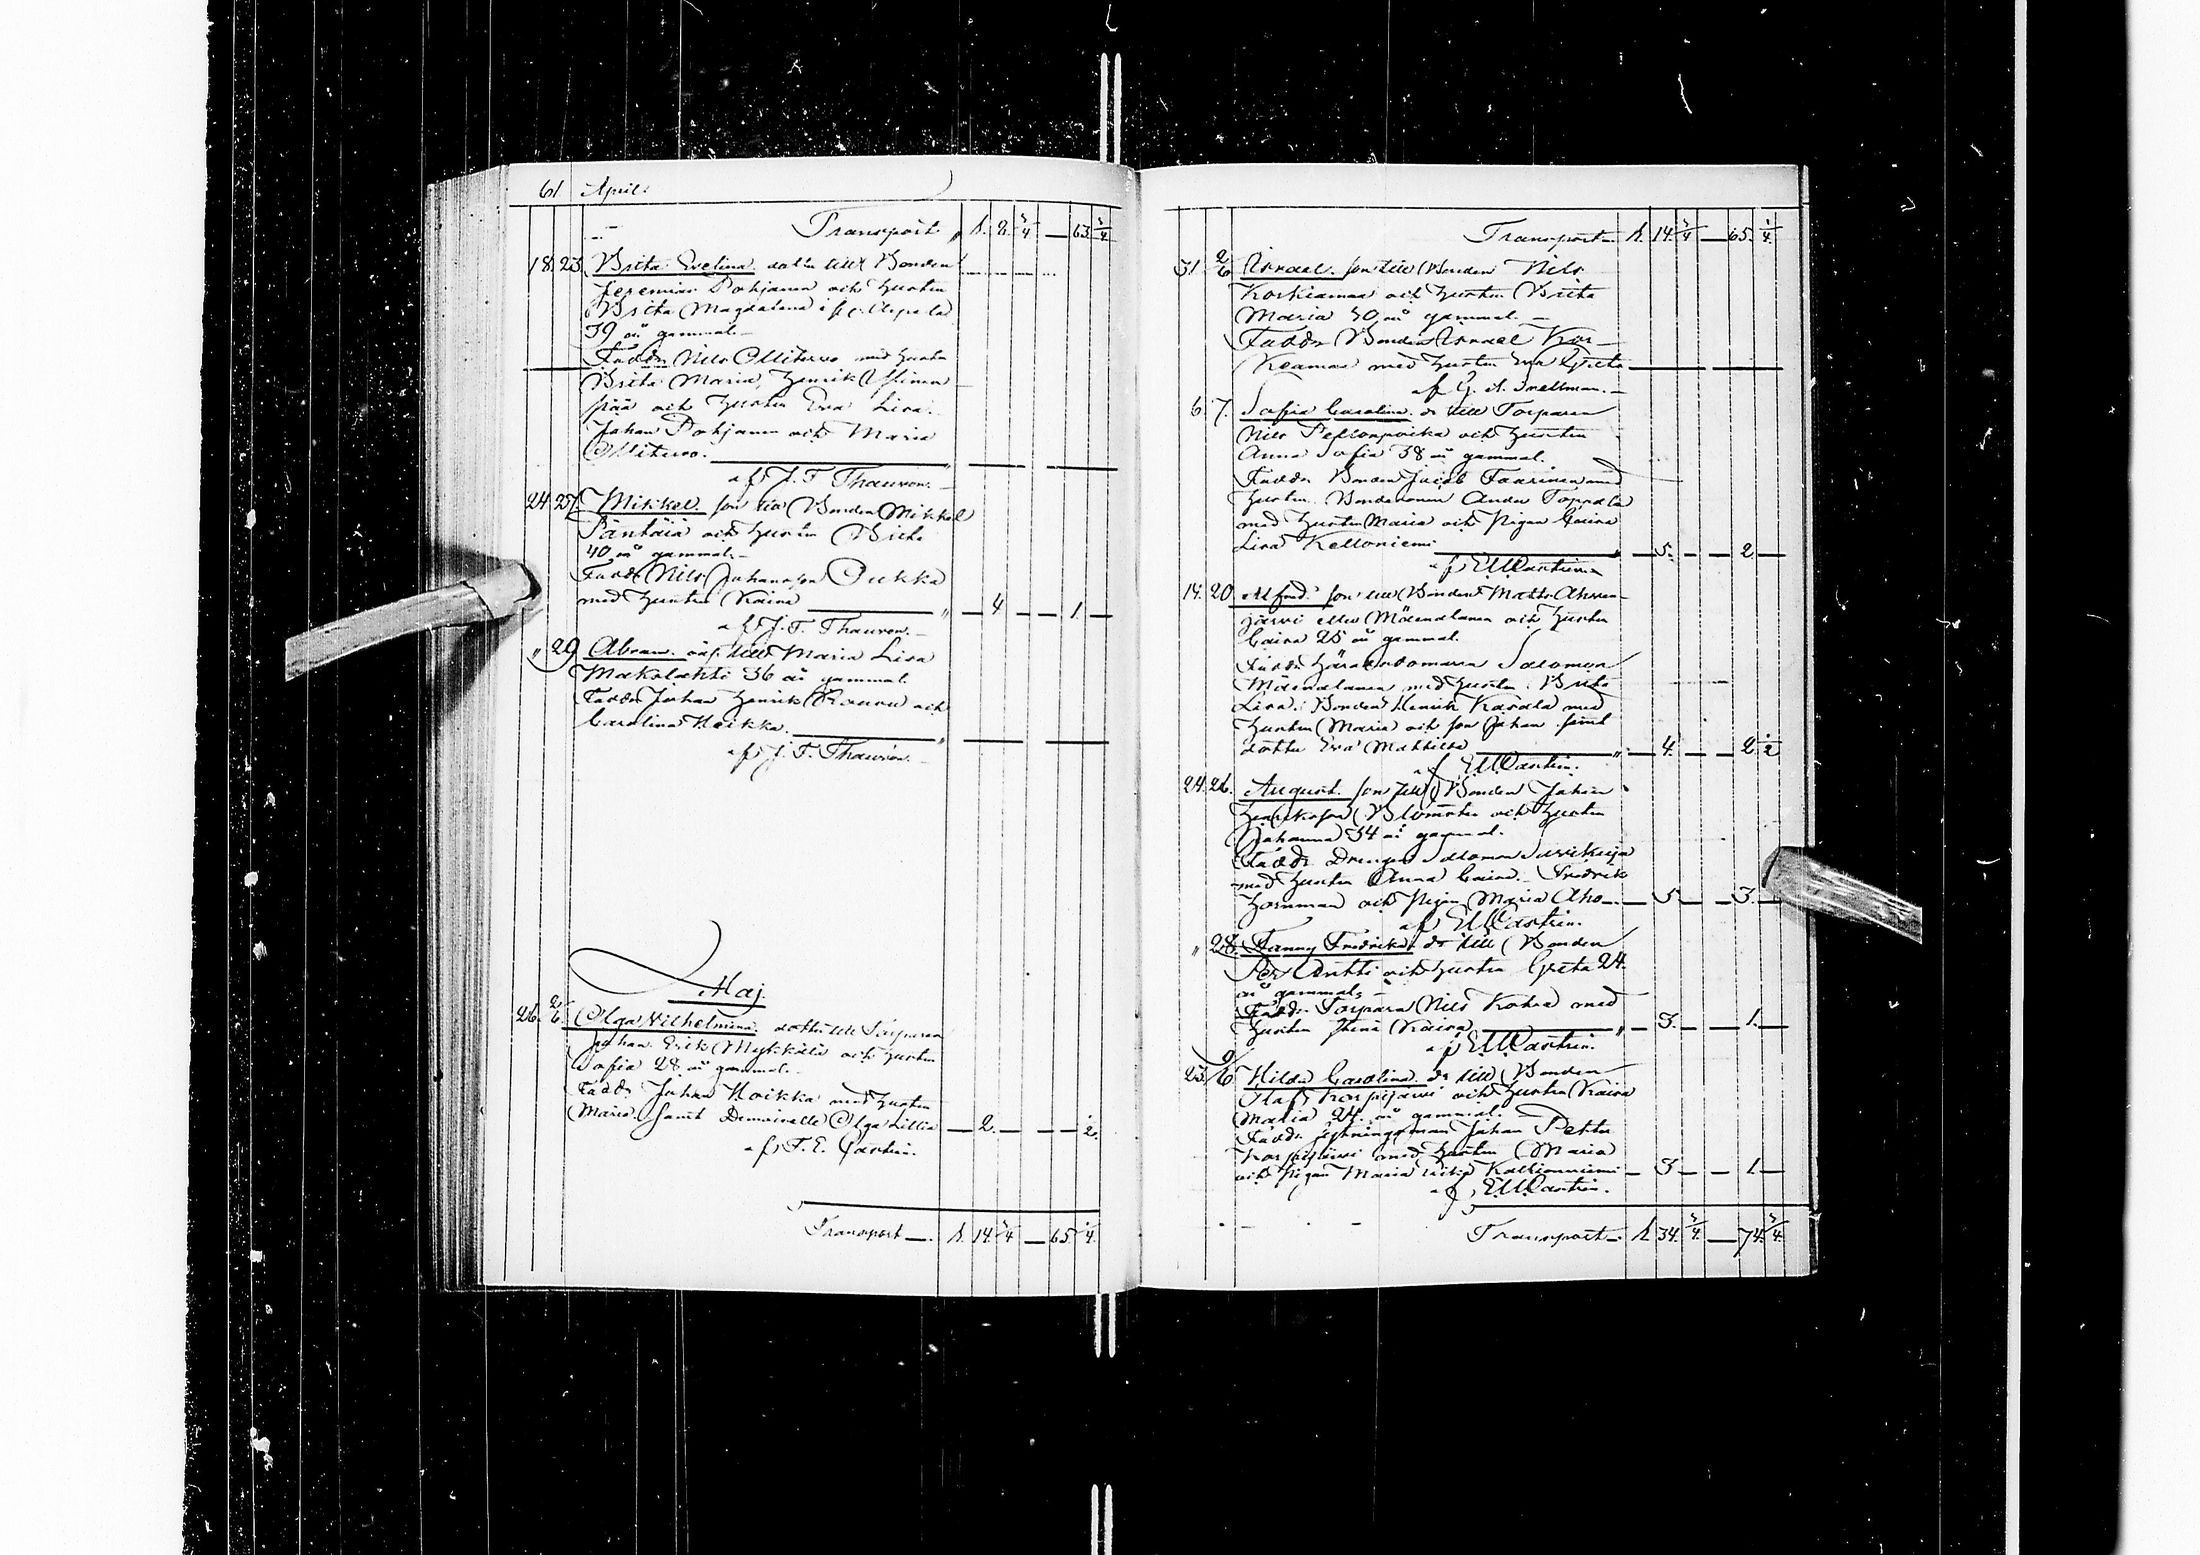 61 April
Transport „ 1. 8. 3/4 — 63. 3/4
18. 23. Brita Evelina dotter till Bonden
Jeremias Pohjanen och hustru
Brita Magdalena i
39 år gammal.
Fadd. Nils Ollitervo med hustru
Brita Maria, Henrik
pää och hustru Eva Lisa.
Johan Pohjanen och Maria
Ollitervo.
af J. F. Thauvon.
24 27. Mikkel son till Bonden Mikkel
Päntäiä och hustru Brita
40 år gammal.
Fadd. Nils Johansson Outkka
med hustru Kaisa „ — 4 — — 1. —
af J. F. Thauvon.
„ 29 Abram till Maria Lisa
Makolahti 36 år gammal.
Fadd. Johan Henrik Rauvu och
Carolina Hoikka.
af J. F. Thauvon.
Maj.
26. 2/6. Olga Vilhelmina dotter till Torparen
Johan Erik Mykkälä och hustru
Sofia 28 år gammal.
Fadd. Johan Hoikka med hustru
Maria samt Demoiselle Olga Lillia — 2. — — 1/2.
af F. E. Castrén.
Transport — 1. 14. 3/4 — 65 1/4.
Transport — 1. 14. 3/4 — 65. 1/4.
31. 2/6 Israel son till Bonden Nils
Korkiamaa och hustru Brita
Maria 30 år gammal.
Fadd. Bonden Israel Kor-
keamaa med hustru Eva Greta
af G. A. Snellman.
6. 7. Sofia Carolina dr till Torparen
Nils Peltonpoika och hustru
Anna Sofia 38 år gammal.
Fadd. Bonden Jacob Taarinen med
hustru. Bondesonen Ander Poppala
med hustru Maria och Pigan Caisa
Lisa Kelloniemi — 5. — — 2. —
af E. M. Castrén.
14. 20 Alfred son till Bonden Matts Ahven-
järvi eller Mäenalanen och hustru
Caisa 25 år gammal.
Fadd. Häradsdomaren Salomon
Mäenalanen med hustru Brita
Lisa. Bonden Henrik Karala med
hustru Maria och son Johan samt
dotter Eva Mathilda „ — 4. — — 2. 1/2
af E. M. Castrén.
24. 26. August son till Bonden Johan
Henriksson Blomster och hustru
Johanna 34 år gammal.
Fadd. Drengen Salomon
med hustru Anna Caisa. Fredrik
Hornman och Pigan Maria Aho — 5 — — 3. —
af E. M. Castrén.
„ 28. Fanny Fredrika dr till Bonden
Per Antti och hustru Greta 24.
år gammal.
Fadd. Torparn Nils Kohva med
hustru Stina Kaisa „ — 3. — — 1. —
af E. M. Castrén.
23. 9/6 Hilda Carolina dr till Bonden
Olaf Korpijärvi och hustru Kaisa
Maria 24. år gammal.
Fadd. Johan Petter
Korpijärvi med hustru Maria
och Pigan Maria Kallioniemi — 3 — — 1. —
af E. M. Castrén.
Transport — 1. 34. 3/4. — 74. 3/4.